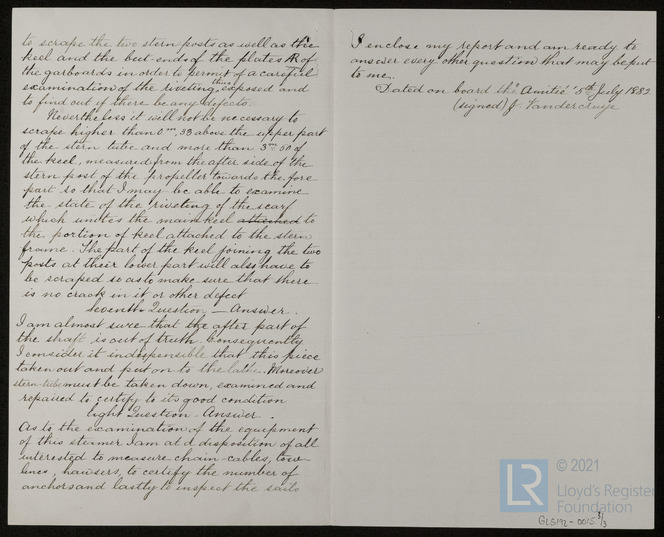 to scrape the two stern posts as well as the
keel and the but-ends of the plates AR of
the garboards in order to permit of a careful
examination of the riveting thus exposed and
to find out if there be any defects.
Nevertheless it will not be necessary to
scrape higher than 0m,33 above the upper part
of the stern tube and more than 3m 50 of
the keel, measured from the after side of the
stern post of the propeller towards the fore
part so that I may be able to examine
the state of the riveting of the scarf
which unites the main keel attached to
the portion of keel attached to the stern
frame. The part of the keel joining the two
posts at their lower part will also have to
be scraped so as to make sure that there
is no crack in it or other defect
Seventh Question — Answer.
I am almost sure that the after part of
the shaft is out of truth. Consequently
I consider it indispensible that this piece
taken out and put on to the lathe. Moreover
stern-tube must be taken down, examined and
repaired to certify to its good condition
Eight Question - Answer.
As to the examination of the equipment
of this steamer I am at d disposition of all
interested to measure chain-cables, tow-
lines, hawsers, to certify the number of
anchors and lastly to inspect the sails
I enclose my report and am ready to
answer every other question that may be put
to me.
Dated on board the "Amitié" 5th July 1882
(signed) J. Vandercruyce
© 2021
LR
Lloyd's Register
Foundation
GLS192-0015 3/3